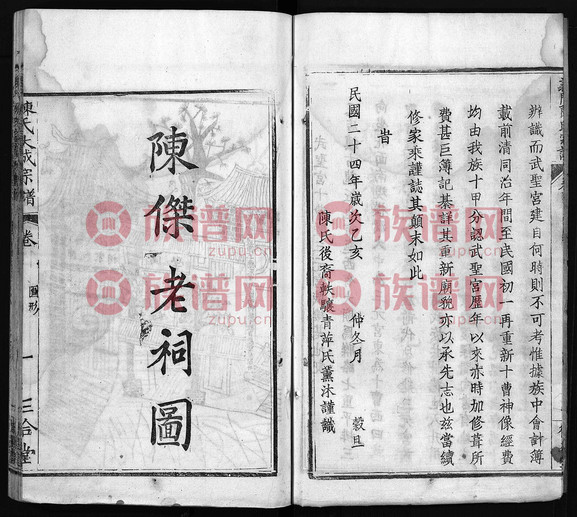 辦識而武聖宮建自何時則不可考惟據族中會計簿
載前清同治年間至民國初一再重新十曹神像經費
均由我族十甲分認武聖宮歷年以來亦時加修葺所
費甚巨簿記綦詳其重新廟貌亦以承先志也茲當續
修家乘謹誌其顛末如此
旹
民國二十四年歲次乙亥 仲冬月 穀旦
陳氏後裔軼驤青萍氏薰沐謹識
陳傑老祠圖
陳氏大成宗譜 卷 圖形 一 三合堂
族谱网
zupu.cn
族谱网
zupu.cn
族谱网
zupu.cn
族谱网
zupu.cn